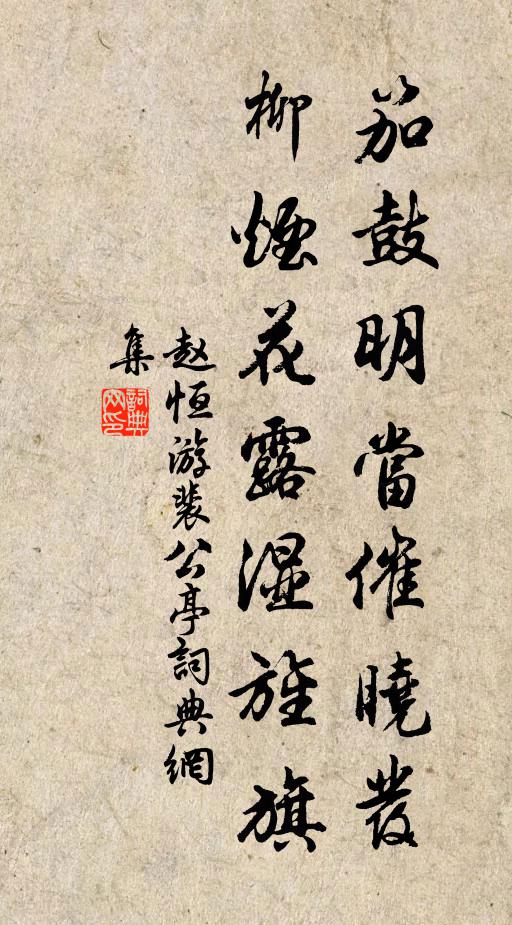 笳鼓明當催曉發
柳煙花露湿旌旗
赵恒游裴公亭詞典網
集
詞典
网印